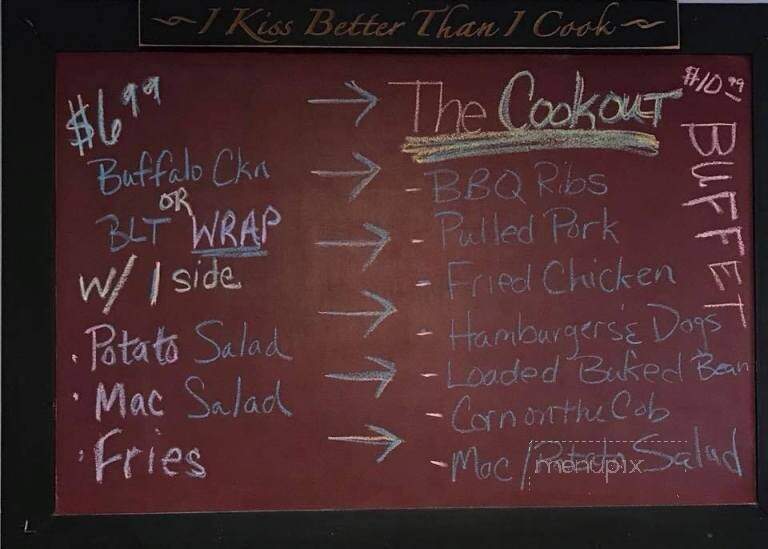 I Kiss Better Than I Cook
$6.99
Buffalo Ckn
OR
BLT WRAP
W/ 1 side
· Potato Salad
· Mac Salad
· Fries
The Cookout
- BBQ Ribs
- Pulled Pork
- Fried Chicken
- Hamburgers & Dogs
- Loaded Baked Bean
- Corn on the Cob
- Mac / Potato Salad
menupix
$10.99
BUFFET